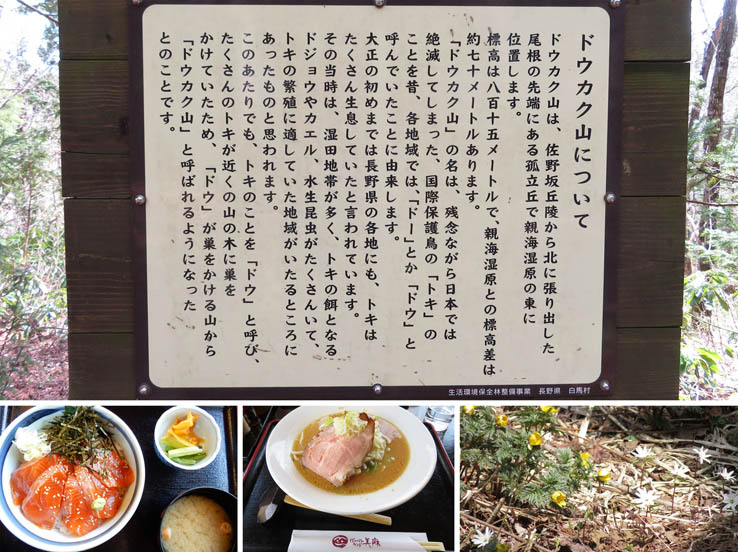 ドウカク山について
ドウカク山は、佐野坂丘陵から北に張り出した
尾根の先端にある孤立丘で親海湿原の東に
位置します。
標高は八百十五メートルで、親海湿原との標高差は
約七十メートルあります。
「ドウカク山」の名は、残念ながら日本では
絶滅してしまった、国際保護鳥の「トキ」の
ことを昔、各地域では、「ドー」とか「ドウ」と
呼んでいたことに由来します。
大正の初めまでは長野県の各地にも、トキは
たくさん生息していたと言われています。
その当時は、湿田地帯が多く、トキの餌となる
ドジョウやカエル、水生昆虫がたくさんいて、
トキの繁殖に適していた地域がいたるところに
あったものと思われます。
このあたりでも、トキのことを「ドウ」と呼び、
たくさんのトキが近くの山の木に巣を
かけていたため、「ドウ」が巣をかける山から
「ドウカク山」と呼ばれるようになった
とのことです。
生活環境保全林整備事業 長野県 白馬村